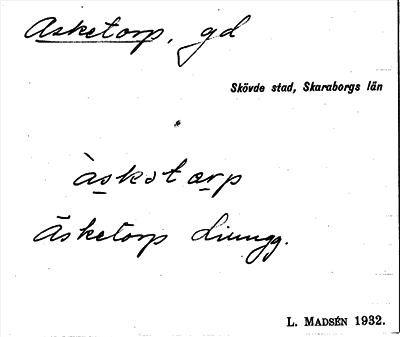 Asketorp, gd
Skövde stad, Skaraborgs län
àskstærp
Asketorp Liungg.
L. MADSÉN 1932.